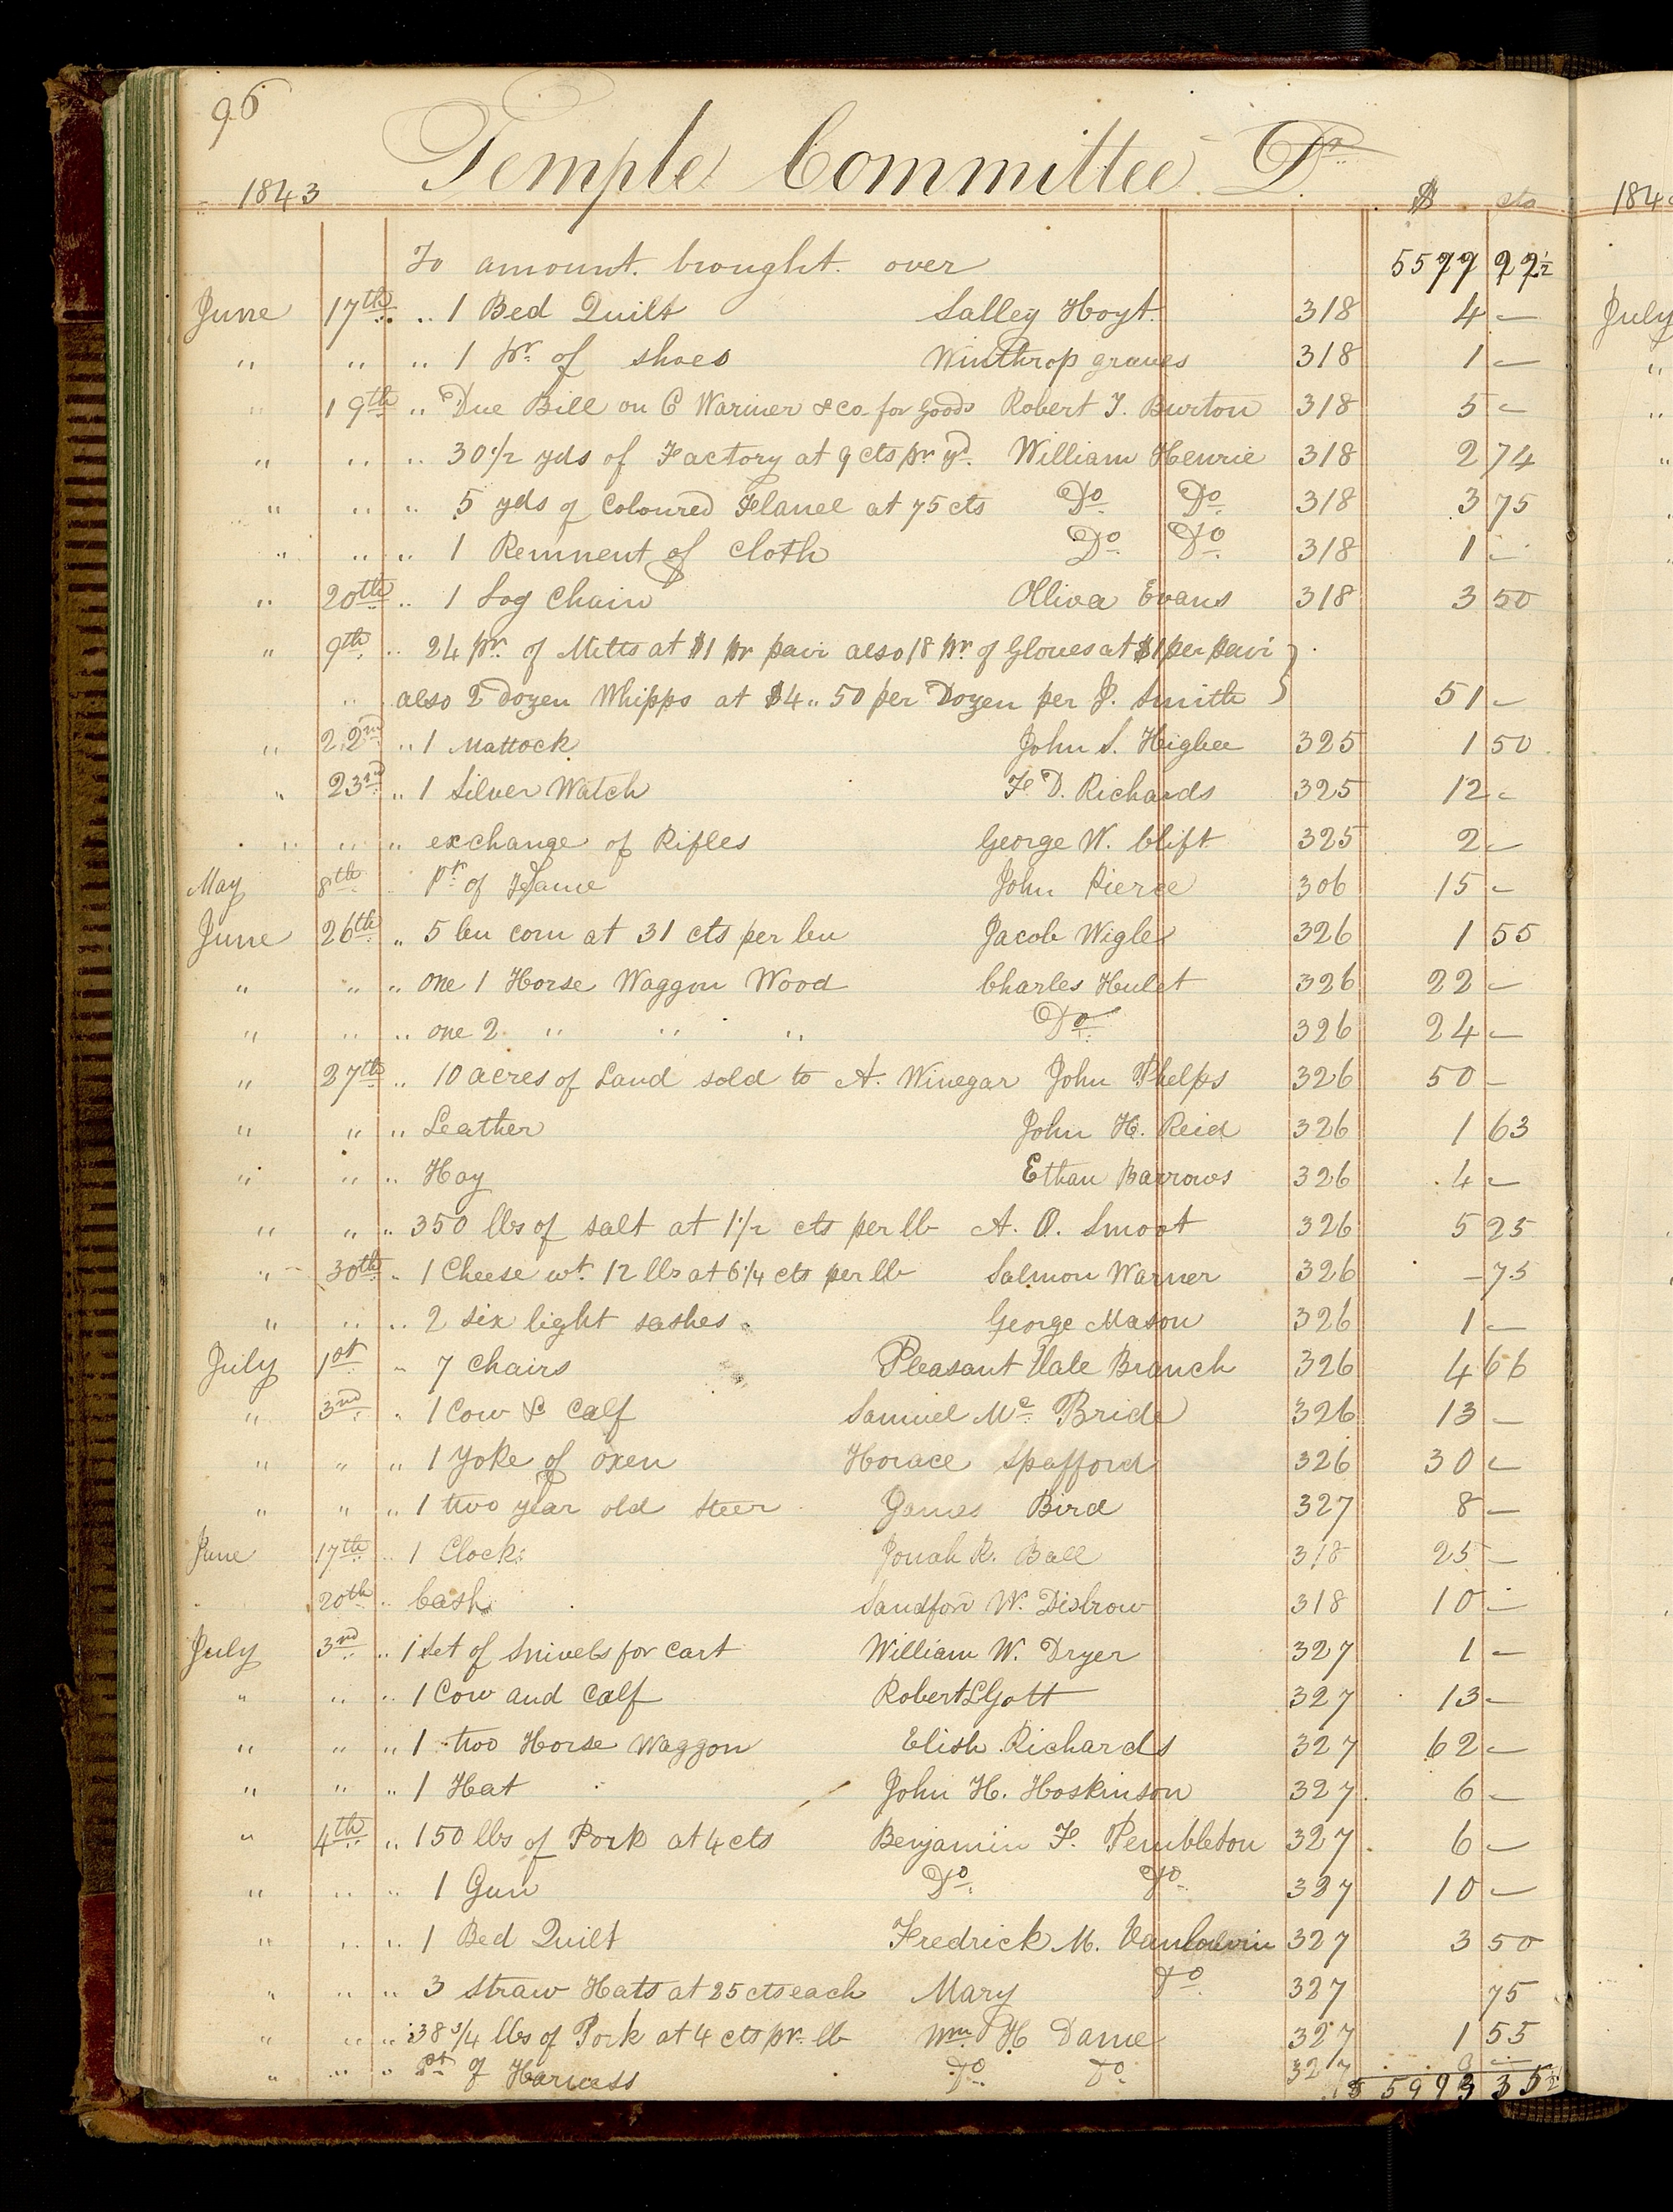 96
Temple Committee Dr
1843 $ cts 184
To amount brought over 5577 77½
June 17th " 1 Bed Quilt Salley Hoyt 318 4 — July
" " " 1 pr of shoes Winthrop graves 318 1 —
" 19th " Due Bill on C Warner & co for Goods Robert T. Burton 318 5 —
" " " 30 1/2 yds of Factory at 9 cts pr yd. William Henrie 318 2 74
" " " 5 yds of Coloured Flanel at 75 cts Do Do 318 3 75
" " " 1 Remnent of Cloth Do Do 318 1 —
" 20th " 1 Log Chain Oliva Evans 318 3 50
" 9th " 24 pr. of Mitts at $1 pr pair also 18 pr. of Gloves at $1 per pair }
" also 2 Dozen Whipps at $4 " 50 per Dozen per J. Smith } 51 —
" 22nd " 1 Mattock John S. Higbee 325 1 50
" 23rd " 1 Silver Watch F. D. Richards 325 12 —
" " " exchange of Rifles George W. Clift 325 2 —
May 8th " Pt of John Pierce 306 15 —
June 26th " 5 bu corn at 31 cts per bu Jacob Wigle 326 1 55
" " " one 1 Horse Waggon Wood Charles Hulet 326 22 —
" " " one 2 " " " Do 326 24 —
" 27th " 10 acres of Land sold to A. Winegar John Phelps 326 50 —
" " " Leather John H. Reid 326 1 63
" " " Hay Ethan Barrows 326 4 —
" " " 350 lbs of salt at 1 1/2 cts per lb A. O. Smoot 326 5 25
" 30th " 1 Cheese wt. 12 lbs at 6 1/4 cts per lb Salmon Warner 326 — 75
" " " 2 six light sashes George Mason 326 1 —
July 1st " 7 Chairs Pleasant Vale Branch 326 4 66
" 3rd " 1 Cow & Calf Samuel Mc Bride 326 13 —
" " " 1 Yoke of oxen Horace Spafford 326 30 —
" " " 1 two year old steer James Bird 327 8 —
June 17th " 1 Clock Jonah R. Ball 318 25 —
" 20th " Cash Sandford W. Disbrow 318 10 —
July 3rd " 1 set of Snivels for Cart William W. Dryer 327 1 —
" " " 1 Cow and Calf Robert L Gott 327 13 —
" " " 1 two Horse Waggon Elish Richards 327 62 —
" " " 1 Hat John H. Hoskinson 327 6 —
" 4th " 150 lbs of Pork at 4 cts Benjamin F. Pembleton 327 6 —
" " " 1 Gun Do Do 327 10 —
" " " 1 Bed Quilt Fredrick M. 327 3 50
" " " 3 Straw Hats at 25 cts each Mary Do 327 75
" " " 38 3/4 lbs of Pork at 4 cts pr. lb Wm H Dame 327 1 55
" " " Pt of Harness Do Do 327
$ 5993 35½